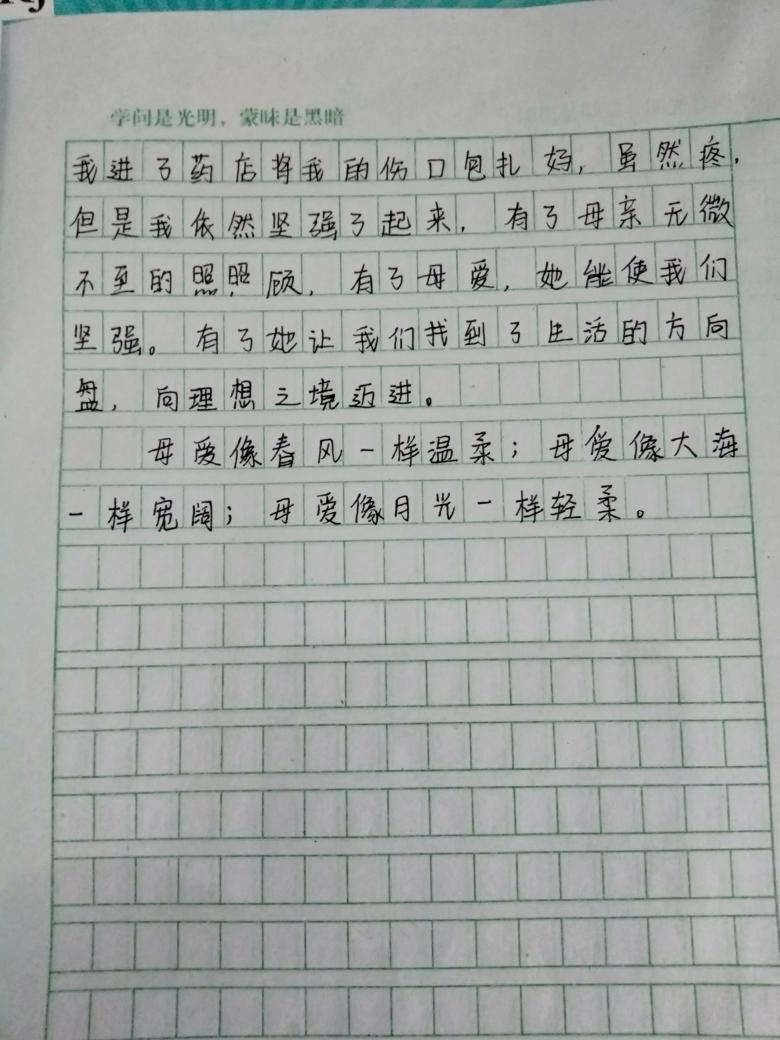 学问是光明，蒙昧是黑暗
我进了药店将我的伤口包扎好，虽然疼．
但是我依然坚强了起来，有了母亲无微
不至的照照顾，有了母爱，她能使我们
坚强。有了她让我们找到了生活的方向
盘，向理想之境迈进。
母爱像春风一样温柔；母爱像大海
一样宽阔；母爱像月光一样轻柔。